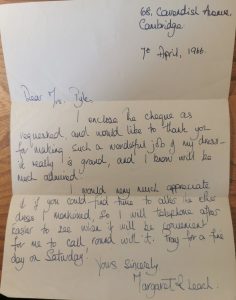 68, Cavendish Avenue,
Cambridge.
7th April, 1966.
Dear Mrs. Pyle,
I enclose the cheque as
requested, and would like to thank you
for making such a wonderful job of my dress -
it really is grand, and I know will be
much admired.
I would very much appreciate
it if you could find time to alter the other
dress I mentioned, so I will telephone after
easter to see when it will be convenient
for me to call round with it. Pray for a fine
day on Saturday!
Yours Sincerely
Margaret R Leach.